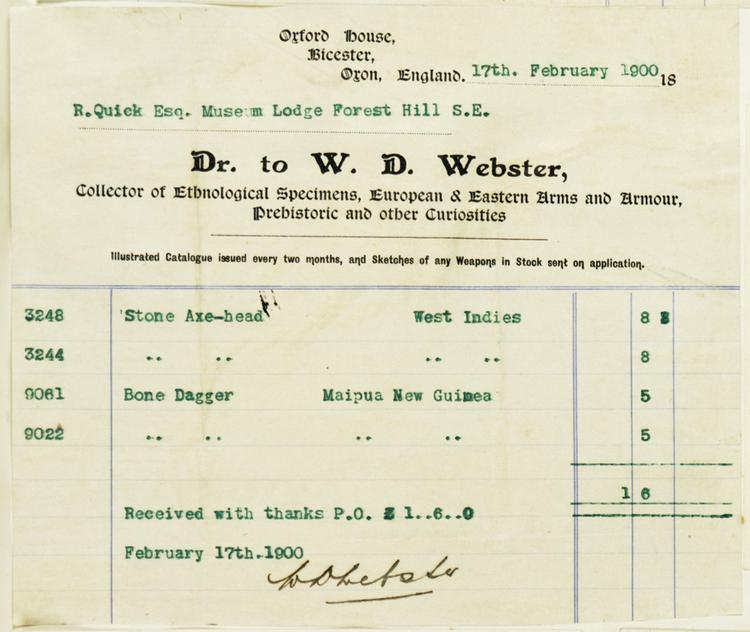 Oxford House,
Bicester,
Oxon, England. 17th. February 1900 18
R.Quick Esq. Museum Lodge Forest Hill S.E.
Dr. to W. D. Webster,
Collector of Ethnological Specimens, European & Eastern Arms and Armour,
Prehistoric and other Curiosities
Illustrated Catalogue issued every two months, and Sketches of any Weapons in Stock sent on application.
3248 'Stone Axe-head West Indies 8
3244 .. .. .. .. 8
9061 Bone Dagger Maipua New Guinea 5
9022 .. .. .. .. 5
1 6
Received with thanks P.O. 1..6..0
February 17th.1900
W D Webster